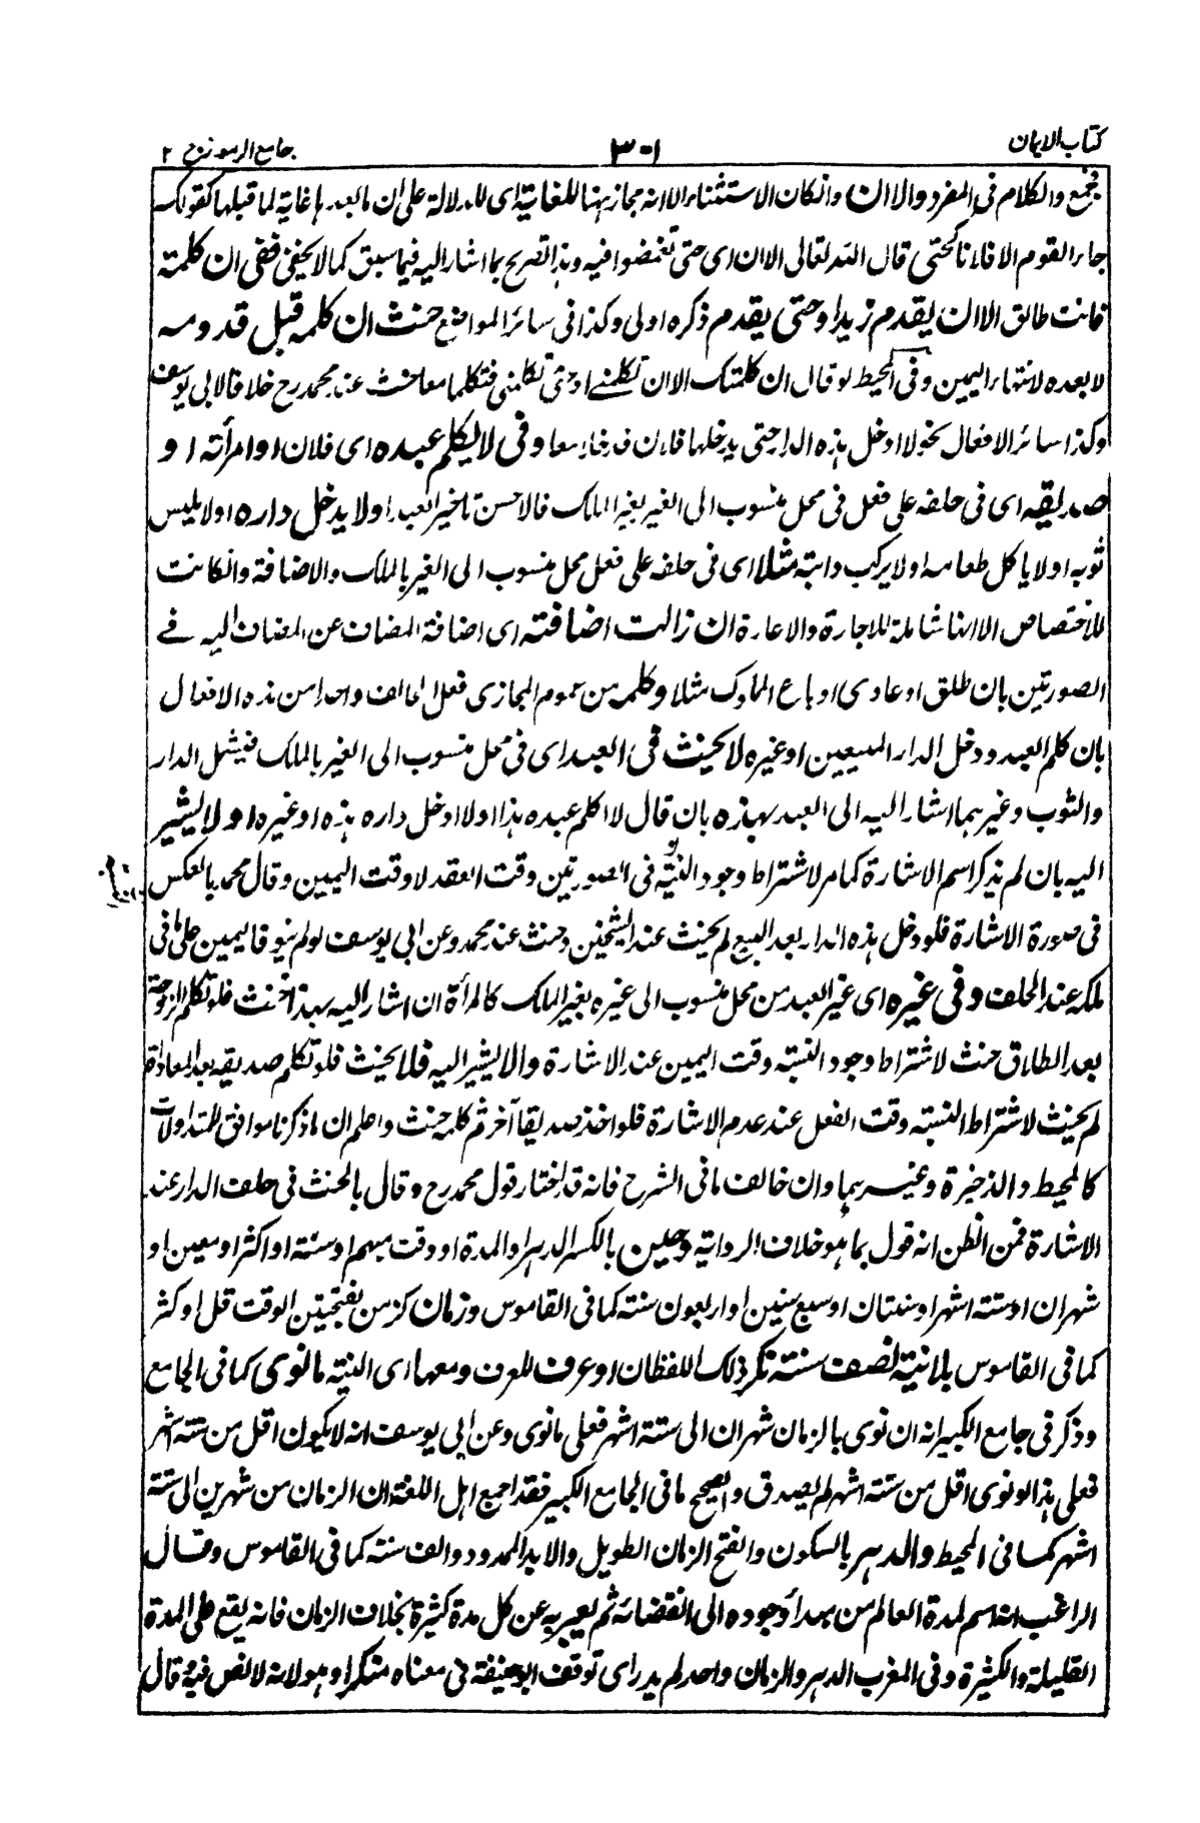 كتاب الايمان
٣٠١
جامع الرموز ج ٢
فجمع والكلام فى المفرد والا ان وانكان الاستثناء الا انه مجاز ههنا للغاية اى للدلالة على ان ما بعدها غاية لما قبلها كقولك
جاء القوم الا فلانا كحتى قال الله تعالى الا ان اى حتى تغمضوا فيه وهذا تصريح بما اشار اليه فيما سبق كما لا يخفى ففى ان كلمته
فانت طالق الا ان يقدم زيد او حتى يقدم ذكره اولى وكذا فى سائر المواضع حنث ان كلمه قبل قدومه
لا بعده لانتهاء اليمين وفى المحيط لو قال ان كلمتك الا ان تكلمنى او حتى تكلمنى فتكلما معا حنث عند محمد رح خلافا لابى يوسف
وكذا سائر الافعال نحو لا ادخل هذه الدار حتى يدخلها فلان فدخلا معا وفى لا يكلم عبده اى فلان او امرأته او
صديقه اى فى حلفه على فعل فى محل منسوب الى الغير بغير الملك فالاحسن تاخير العبد او لا يدخل داره او لا يلبس
ثوبه او لا ياكل طعامه او لا يركب دابته مثلا اى فى حلفه على فعل محل منسوب الى الغير بالملك والاضافة وانكانت
للاختصاص الا انها شاملة للاجارة والاعارة ان زالت اضافته اى اضافة المضاف عن المضاف اليه فى
الصورتين بان طلق او عادى او باع المملوك مثلا وكلمه من عموم المجاز اى فعل الحالف واحدا من هذه الافعال
بان كلم العبد ودخل الدار المبيعين او غيره لا يحنث فى العبد اى فى محل منسوب الى الغير بالملك فيشمل الدار
والثوب وغيرهما اشار اليه الى العبد بهذه بان قال لا اكلم عبده هذا او لا ادخل داره هذه او غيره او لا يشير
اليه بان لم يذكر اسم الاشارة كما مر لاشتراط وجود النسبة فى الصورتين وقت العقد لا وقت اليمين وقال محمد بالعكس
فى صورة الاشارة فلو دخل هذه الدار بعد البيع لم يحنث عند الشيخين وحنث عند محمد وعن ابى يوسف لو لم ينو فاليمين على ما فى
ملكه عند الحلف وفى غيره اى غير العبد من محل منسوب الى غيره بغير الملك كالمرأة ان اشار اليه بهذا حنث فلو تكلم الزوجة
بعد الطلاق حنث لاشتراط وجود النسبة وقت اليمين عند الاشارة والا يشير اليه فلا يحنث فلو تكلم صديقه بعد المعاداة
لم يحنث لاشتراط النسبة وقت الفعل عند عدم الاشارة فلو اخذ صديقا آخر ثم كلمه حنث واعلم ان ما ذكرنا موافق للمتداولات
كالمحيط والذخيرة وغيرهما وان خالف ما فى الشرح فانه قد اختار قول محمد رح وقال بالحنث فى حلف الدار عند
الاشارة فمن الظن انه قول بما هو خلاف الرواية وحين بالكسر الدهر او المدة او وقت مبهم او سنة او اكثر او معين او
شهران او ستة اشهر او سنتان او سبع سنين او اربعون سنة كما فى القاموس وزمان كزمن بفتحتين الوقت قل او كثر
كما فى القاموس بلا نية نصف سنة نكر ذلك اللفظان او عرف للعرف ومعها اى النية ما نوى كما فى الجامع
وذكر فى جامع الكبير انه ان نوى بالزمان شهران الى ستة اشهر فعلى ما نوى وعن ابى يوسف انه لا يكون اقل من ستة اشهر
فعلى هذا لو نوى اقل من ستة اشهر لم يصدق والصحيح ما فى الجامع الكبير فقد اجمع اهل اللغة ان الزمان من شهرين الى ستة
اشهر كما فى المحيط والدهر بالسكون والفتح الزمان الطويل والابد الممدود والف سنة كما فى القاموس وقال
الراغب انه اسم لمدة العالم من مبدأ وجوده الى انقضائه ثم يعبر به عن كل مدة كثيرة بخلاف الزمان فانه يقع على المدة
القليلة والكثيرة وفى المغرب الدهر والزمان واحد لم يدر اى توقف ابو حنيفة فى معناه منكرا وهو لانه لا نص فيه قال